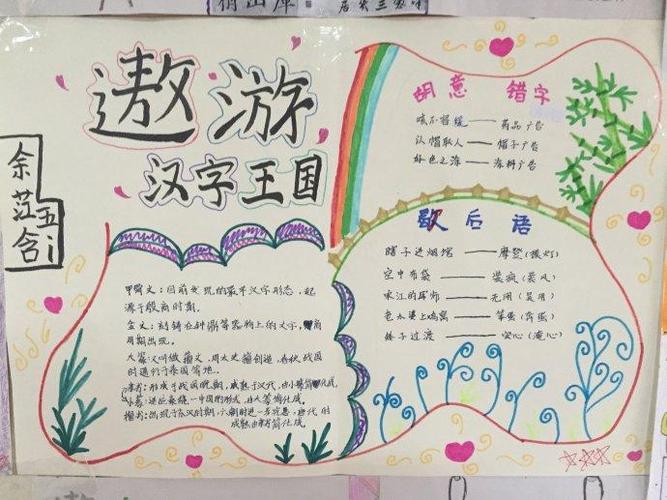 遨游
汉字王国
余茳含
五i
甲骨文：目前发现的最早汉字形态，起
源于殷商时期。
金文：刻铸在钟鼎等器物上的文字，商
周期出现。
大篆又叫做籀文，周太史籀创造，春秋战国
时通行于秦国等地。
隶书：形成于战国晚期，成熟于汉代，由小篆简化成。
小篆：秦统一中国形成，由大篆简化成。
楷书：出现于东汉时期，六朝时进一步完善，唐代时
成熟由隶书简化成。
胡意错字
咳不容缓——药品广告
以帽取人——帽子广告
好色之涂——涂料广告
歇后语
瞎子进烟馆——摩登（摸灯）
空中布袋——装疯（装风）
宋江的军师——无用（吴用）
上鸡窝——笨蛋
子过渡——安心（淹心）